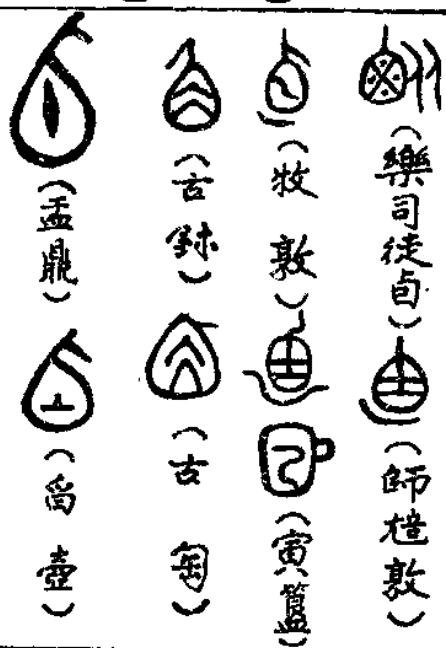 (樂司徒卣)
(師 敦)
(牧敦)
(寅簋)
(古鉥)
(古匋)
(盂鼎)
( 壺)